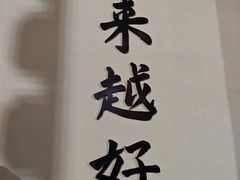 来越好